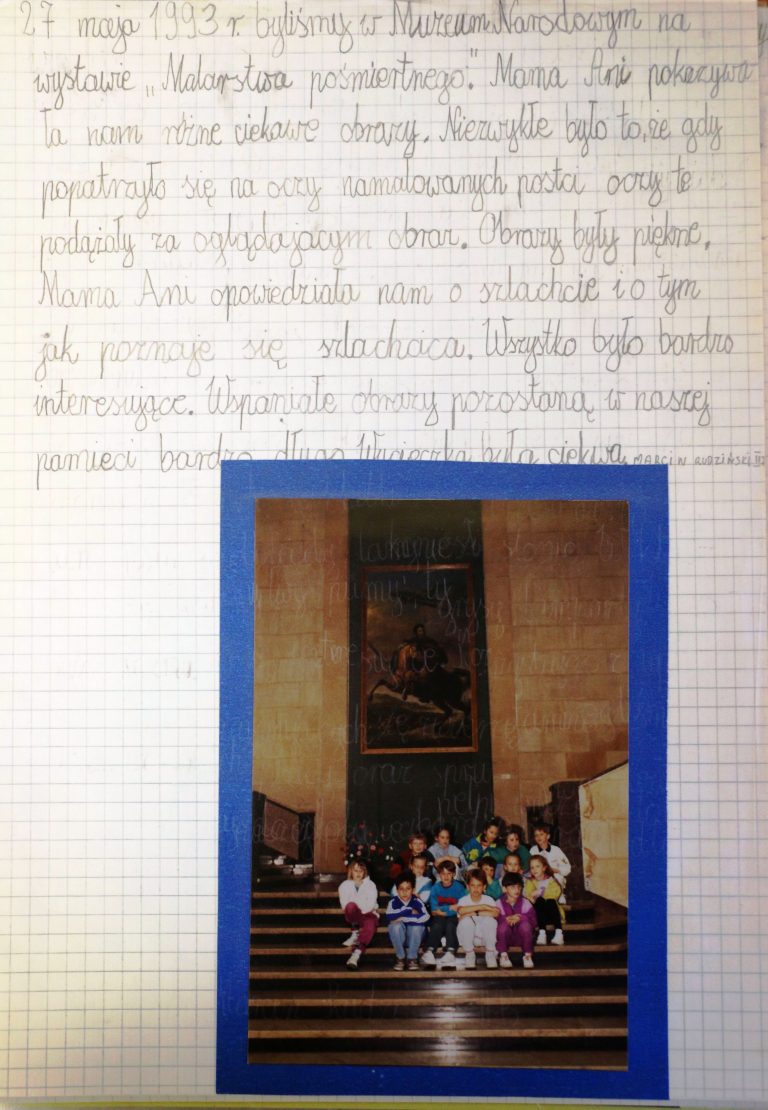 27 maja 1993 r. byliśmy w Muzeum Narodowym na
wystawie „Malarstwa pośmiertnego." Mama Ani pokazywa
ła nam różne ciekawe obrazy. Niezwykłe było to, że gdy
popatrzyło się na oczy namalowanych postci oczy te
podążały za oglądającym obraz. Obrazy były piękne.
Mama Ani opowiedziała nam o szlachcie i o tym
jak poznaje się szlachcica. Wszystko było bardzo
interesujące. Wspaniałe obrazy pozostaną w naszej
pamięci bardzo długo. Wycieczka była ciekwa. MARCIN RUDZIŃSKI